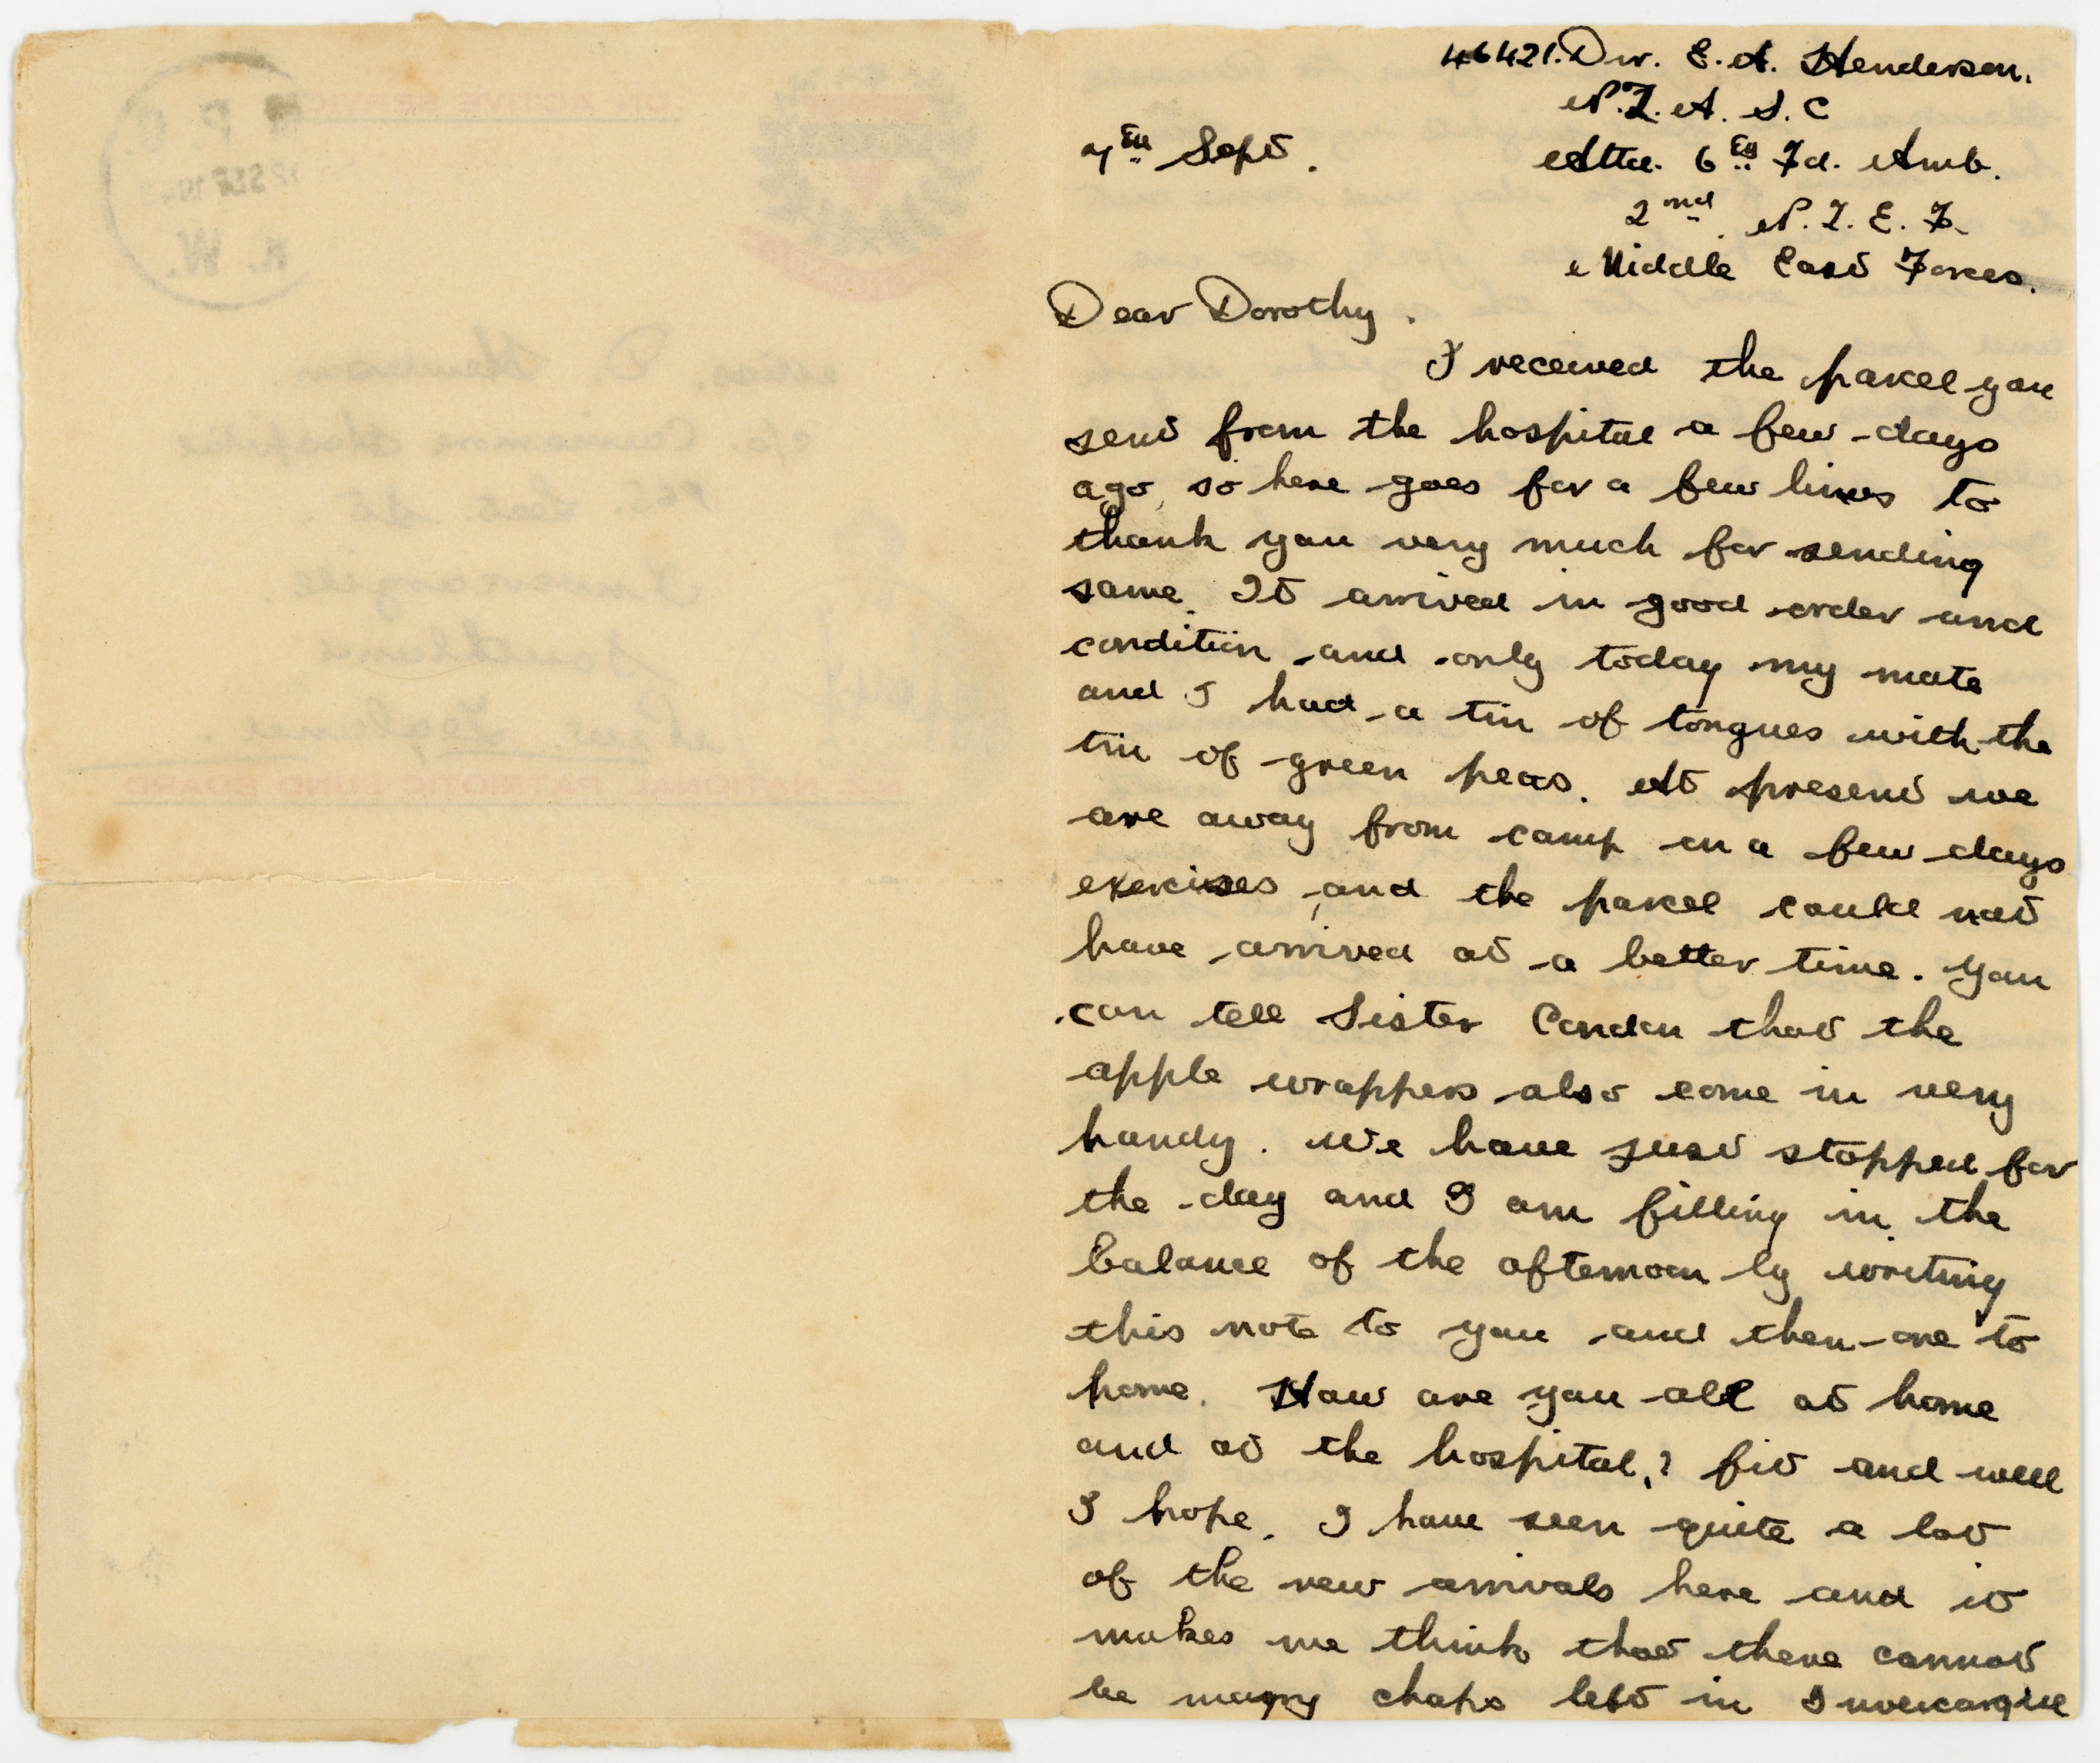 46421. Dvr. E. A. Henderson.
N.Z. A. S. C
Attd. 6th Fd. Amb.
7th Sept.
2nd. N. Z. E. F.
Middle East Forces.
Dear Dorothy.
I received the parcel you
sent from the hospital a few days
ago, so here goes for a few lines to
thank you very much for sending
same. It arrived in good order and
condition and only today my mate
and I had a tin of tongues with the
tin of green peas. At present we
are away from camp on a few days
exercises, and the parcel could not
have arrived at a better time. You
can tell Sister Condon that the
apple wrappers also come in very
handy. We have just stopped for
the day and I am filling in the
balance of the afternoon by writing
this note to you and then one to
home. How are you all at home
and at the hospital,? fit and well
I hope. I have seen quite a lot
of the new arrivals here and it
makes me think that there cannot
be many chaps left in Invercargill
ON ACTIVE SERVICE
12 SEP 194
K. W.
Miss. D. Henderson.
c/o. Cairnsmore Hospital
Invercargill.
Southland
New Zealand.
NATIONAL PATRIOTIC FUND BOARD